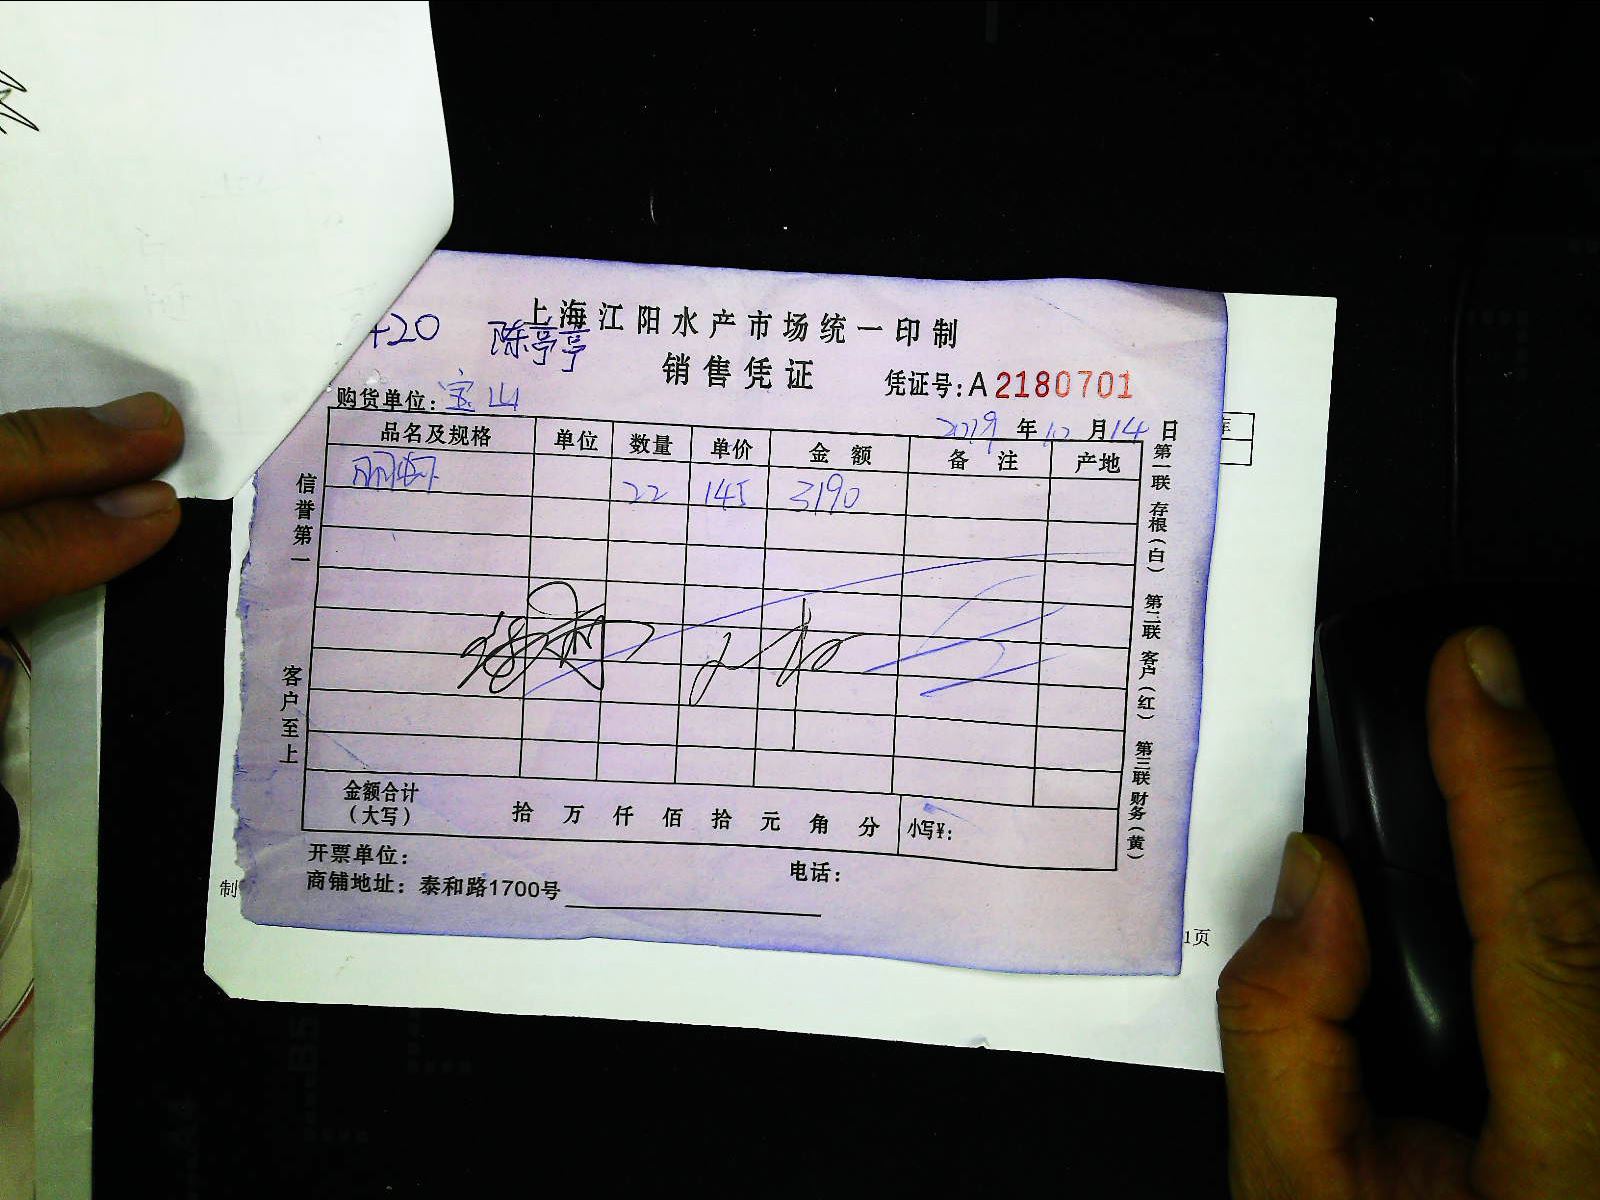 上海江阳水产市场统一印制
420 陈亭亭
销售凭证
凭证号:A 2180701
购货单位:宝山
2019年12月14日
品名及规格 单位 数量 单价 金额 备注 产地
明虾 22 145 3190
信誉第一
客户至上
第一联 存根(白) 第二联 客户(红) 第三联 财务(黄)
金额合计
(大写) 拾 万 仟 佰 拾 元 角 分 小写¥:
开票单位: 电话:
商铺地址:泰和路1700号
制
1页